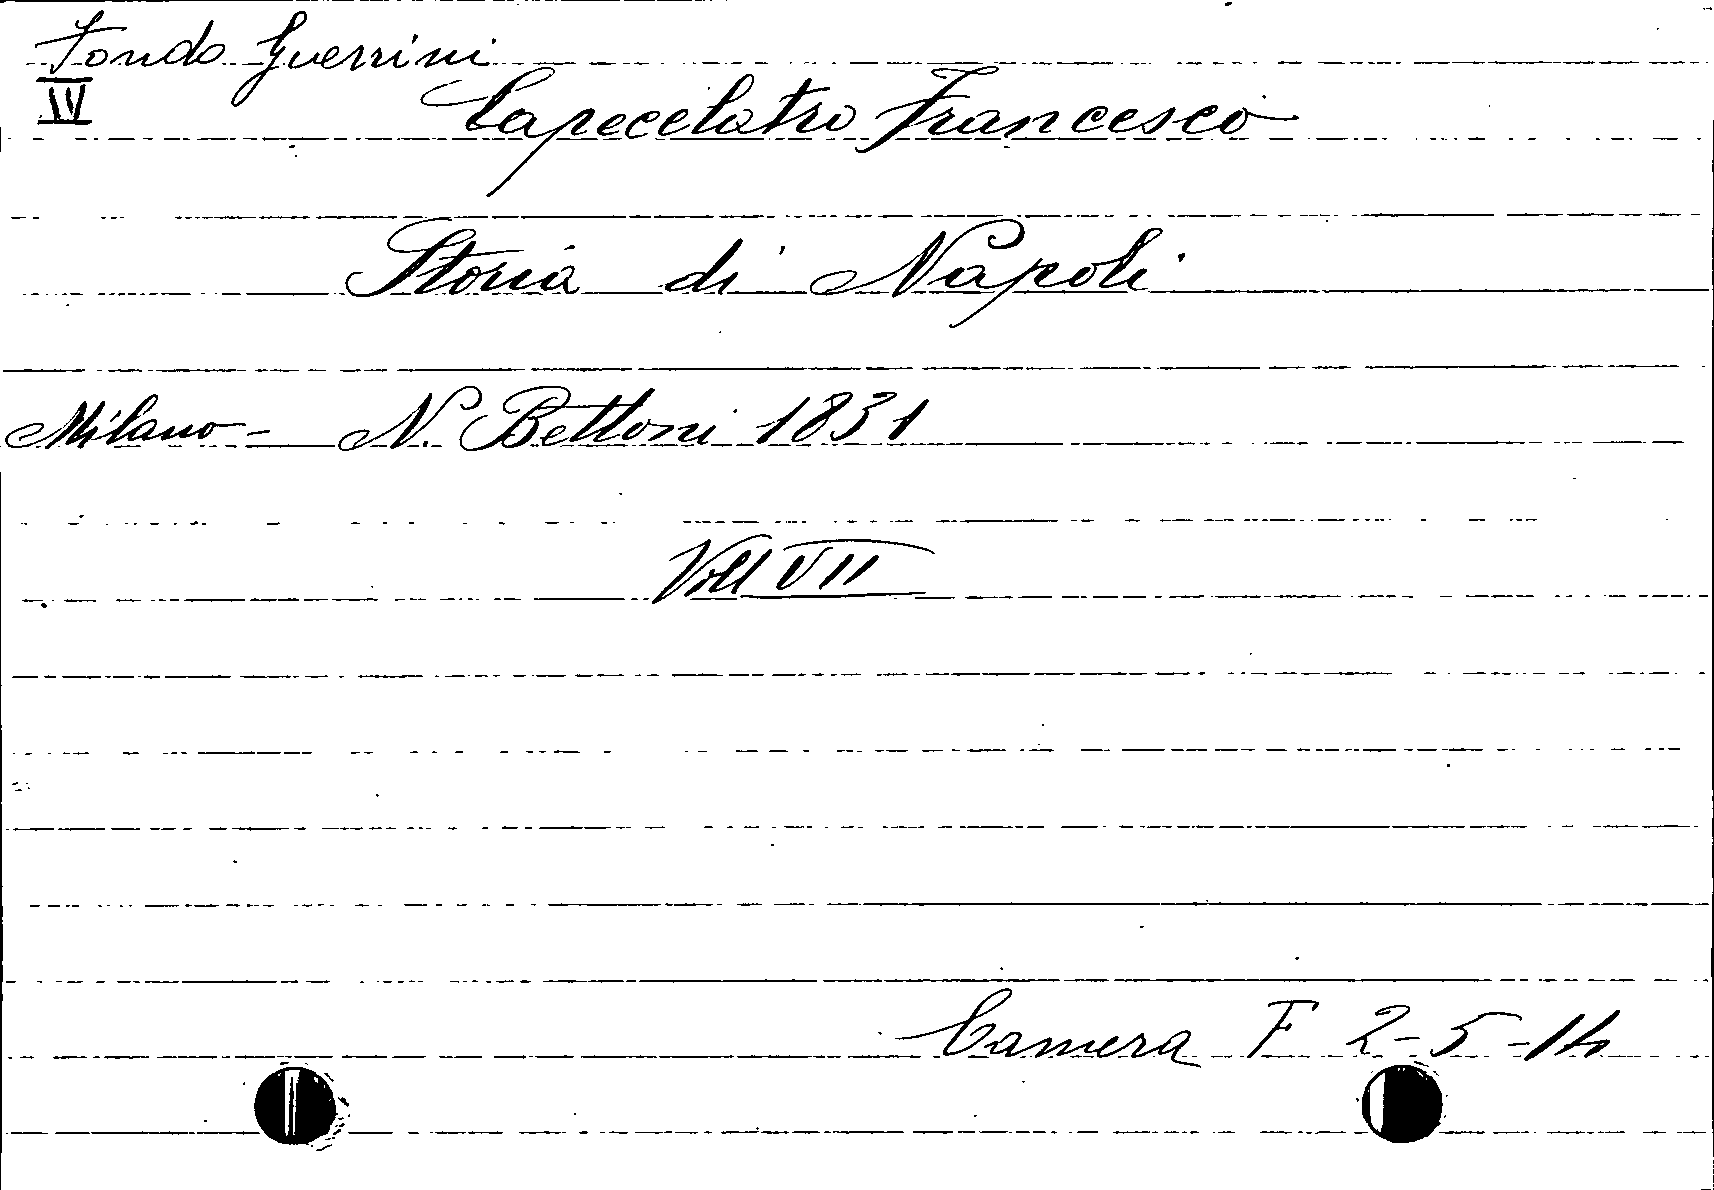 Fondo Guerrini
IV
Capecelatro Francesco
Storia di Napoli
Milano - N. Bettoni 1831
Voll VII
Camera F 2-5-14